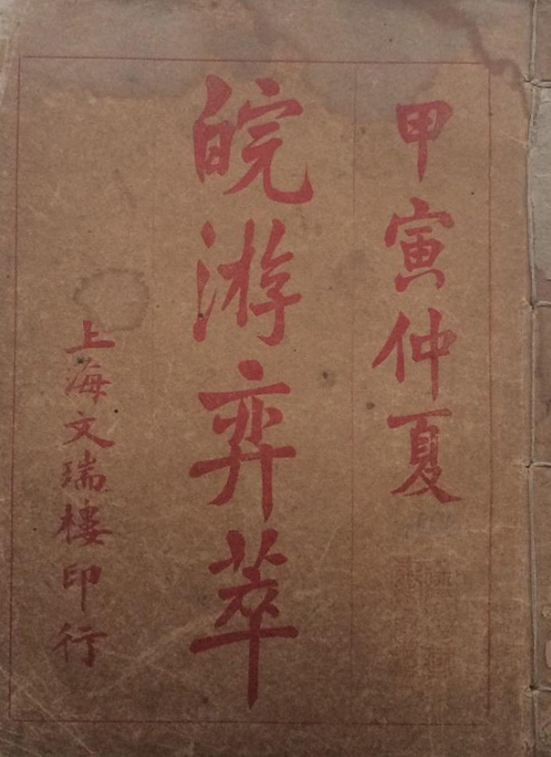 甲寅仲夏
皖游弈萃
上海文瑞樓印行